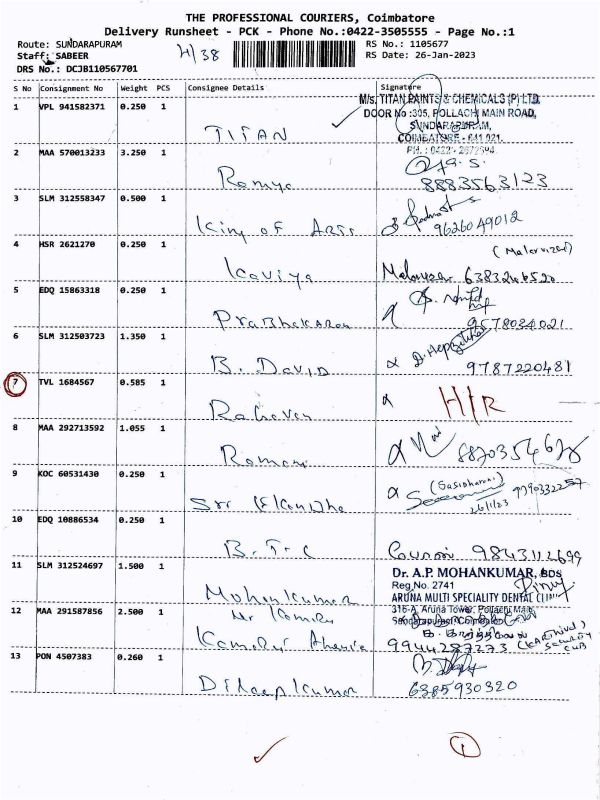 THE PROFESSIONAL COURIERS, Coimbatore
Delivery Runsheet - PCK - Phone No.:0422-3505555 - Page No.:1
Route: SUNDARAPURAM
Staff: SABEER
DRS No.: DCJB110567701
H/38
RS No.: 1105677
RS Date: 26-Jan-2023
S No Consignment No Weight PCS Consignee Details Signature
1 VPL 941582371 0.250 1 TITAN
M/s. TITAN PAINTS & CHEMICALS (P) LTD,
DOOR No :305, POLLACHI MAIN ROAD,
SUNDARAPURAM,
COIMBATORE - 641 021.
PH. : 0422-2672594
2 MAA 570013233 3.250 1 Ramya
8883563123
3 SLM 312558347 0.500 1 King of Arts
9626049012
4 HSR 2621270 0.250 1 Kaviya
5 EDQ 15863318 0.250 1 Prabhakaran
9578034021
6 SLM 312503723 1.350 1 B. David
9787220481
7 TVL 1684567 0.585 1 Raghavan
H/R
8 MAA 292713592 1.055 1
9 KOC 60531430 0.250 1
(Sasidharani)
26/1/23
10 EDQ 10886534 0.250 1 B.T.C
9843112699
11 SLM 312524697 1.500 1 Mohankumar
Dr. A.P. MOHANKUMAR, BDS
Reg.No. 2741
ARUNA MULTI SPECIALITY DENTAL CLINIC
316-A, Aruna Tower, Pollachi Main
Sundarapuram, Coimbatore
12 MAA 291587856 2.500 1
9944287273
13 PON 4507383 0.260 1 Dileepkumar
6385930320
1